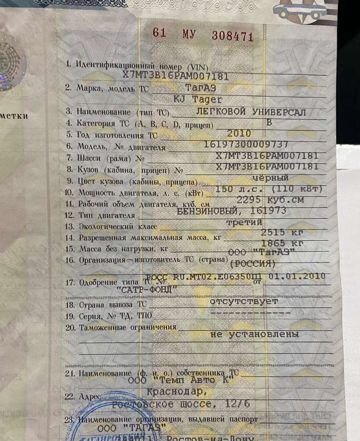 метки
61 МУ 308471
1. Идентификационный номер (VIN)
X7MT3B16PAM007181
2. Марка, модель ТС ТагАЗ
KJ Tager
3. Наименование (тип ТС) ЛЕГКОВОЙ УНИВЕРСАЛ
4. Категория ТС (A, B, C, D, прицеп) B
5. Год изготовления ТС 2010
6. Модель, № двигателя 16197300009737
7. Шасси (рама) № X7MT3B16PAM007181
8. Кузов (кабина, прицеп) № X7MT3B16PAM007181
9. Цвет кузова (кабины, прицепа) чёрный
10. Мощность двигателя, л. с. (кВт) 150 л.с. (110 кВт)
11. Рабочий объем двигателя, куб. см 2295 куб.см
12. Тип двигателя БЕНЗИНОВЫЙ, 161973
13. Экологический класс третий
14. Разрешенная максимальная масса, кг 2515 кг
15. Масса без нагрузки, кг 1865 кг
16. Организация—изготовитель ТС (страна) ООО "ТагАЗ"
(РОССИЯ)
17. Одобрение типа ТС № РОСС RU.МТ02.Е06350П1 01.01.2010
"САТР-ФОНД"
18. Страна вывоза ТС отсутствует
19. Серия, № ТД, ТПО --------------
20. Таможенные ограничения не установлены
21. Наименование (ф. и. о.) собственника ТС
ООО "Темп Авто К"
22. Адрес Краснодар,
Ростовское шоссе, 12/6
23. Наименование организации, выдавшей паспорт
ООО "ТАГАЗ"
Ростов-на-Дону